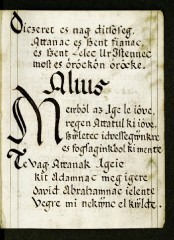 Dicseret es nag ditlőseg.
Attanac es Sent fianac,
es Sent Lelec Ur Istennec
most es őrőckőn őrőcke.
Alius
Menből az Ige le iőve,
regen Attatul ki iőve.
születec idvessegünkre
es fogsaginkbol ki mente
Te vag Attanak Igeie
kit Adamnac meg igere
david Abrahamnac ielente
Vegre mi nekÿne el kÿlde.